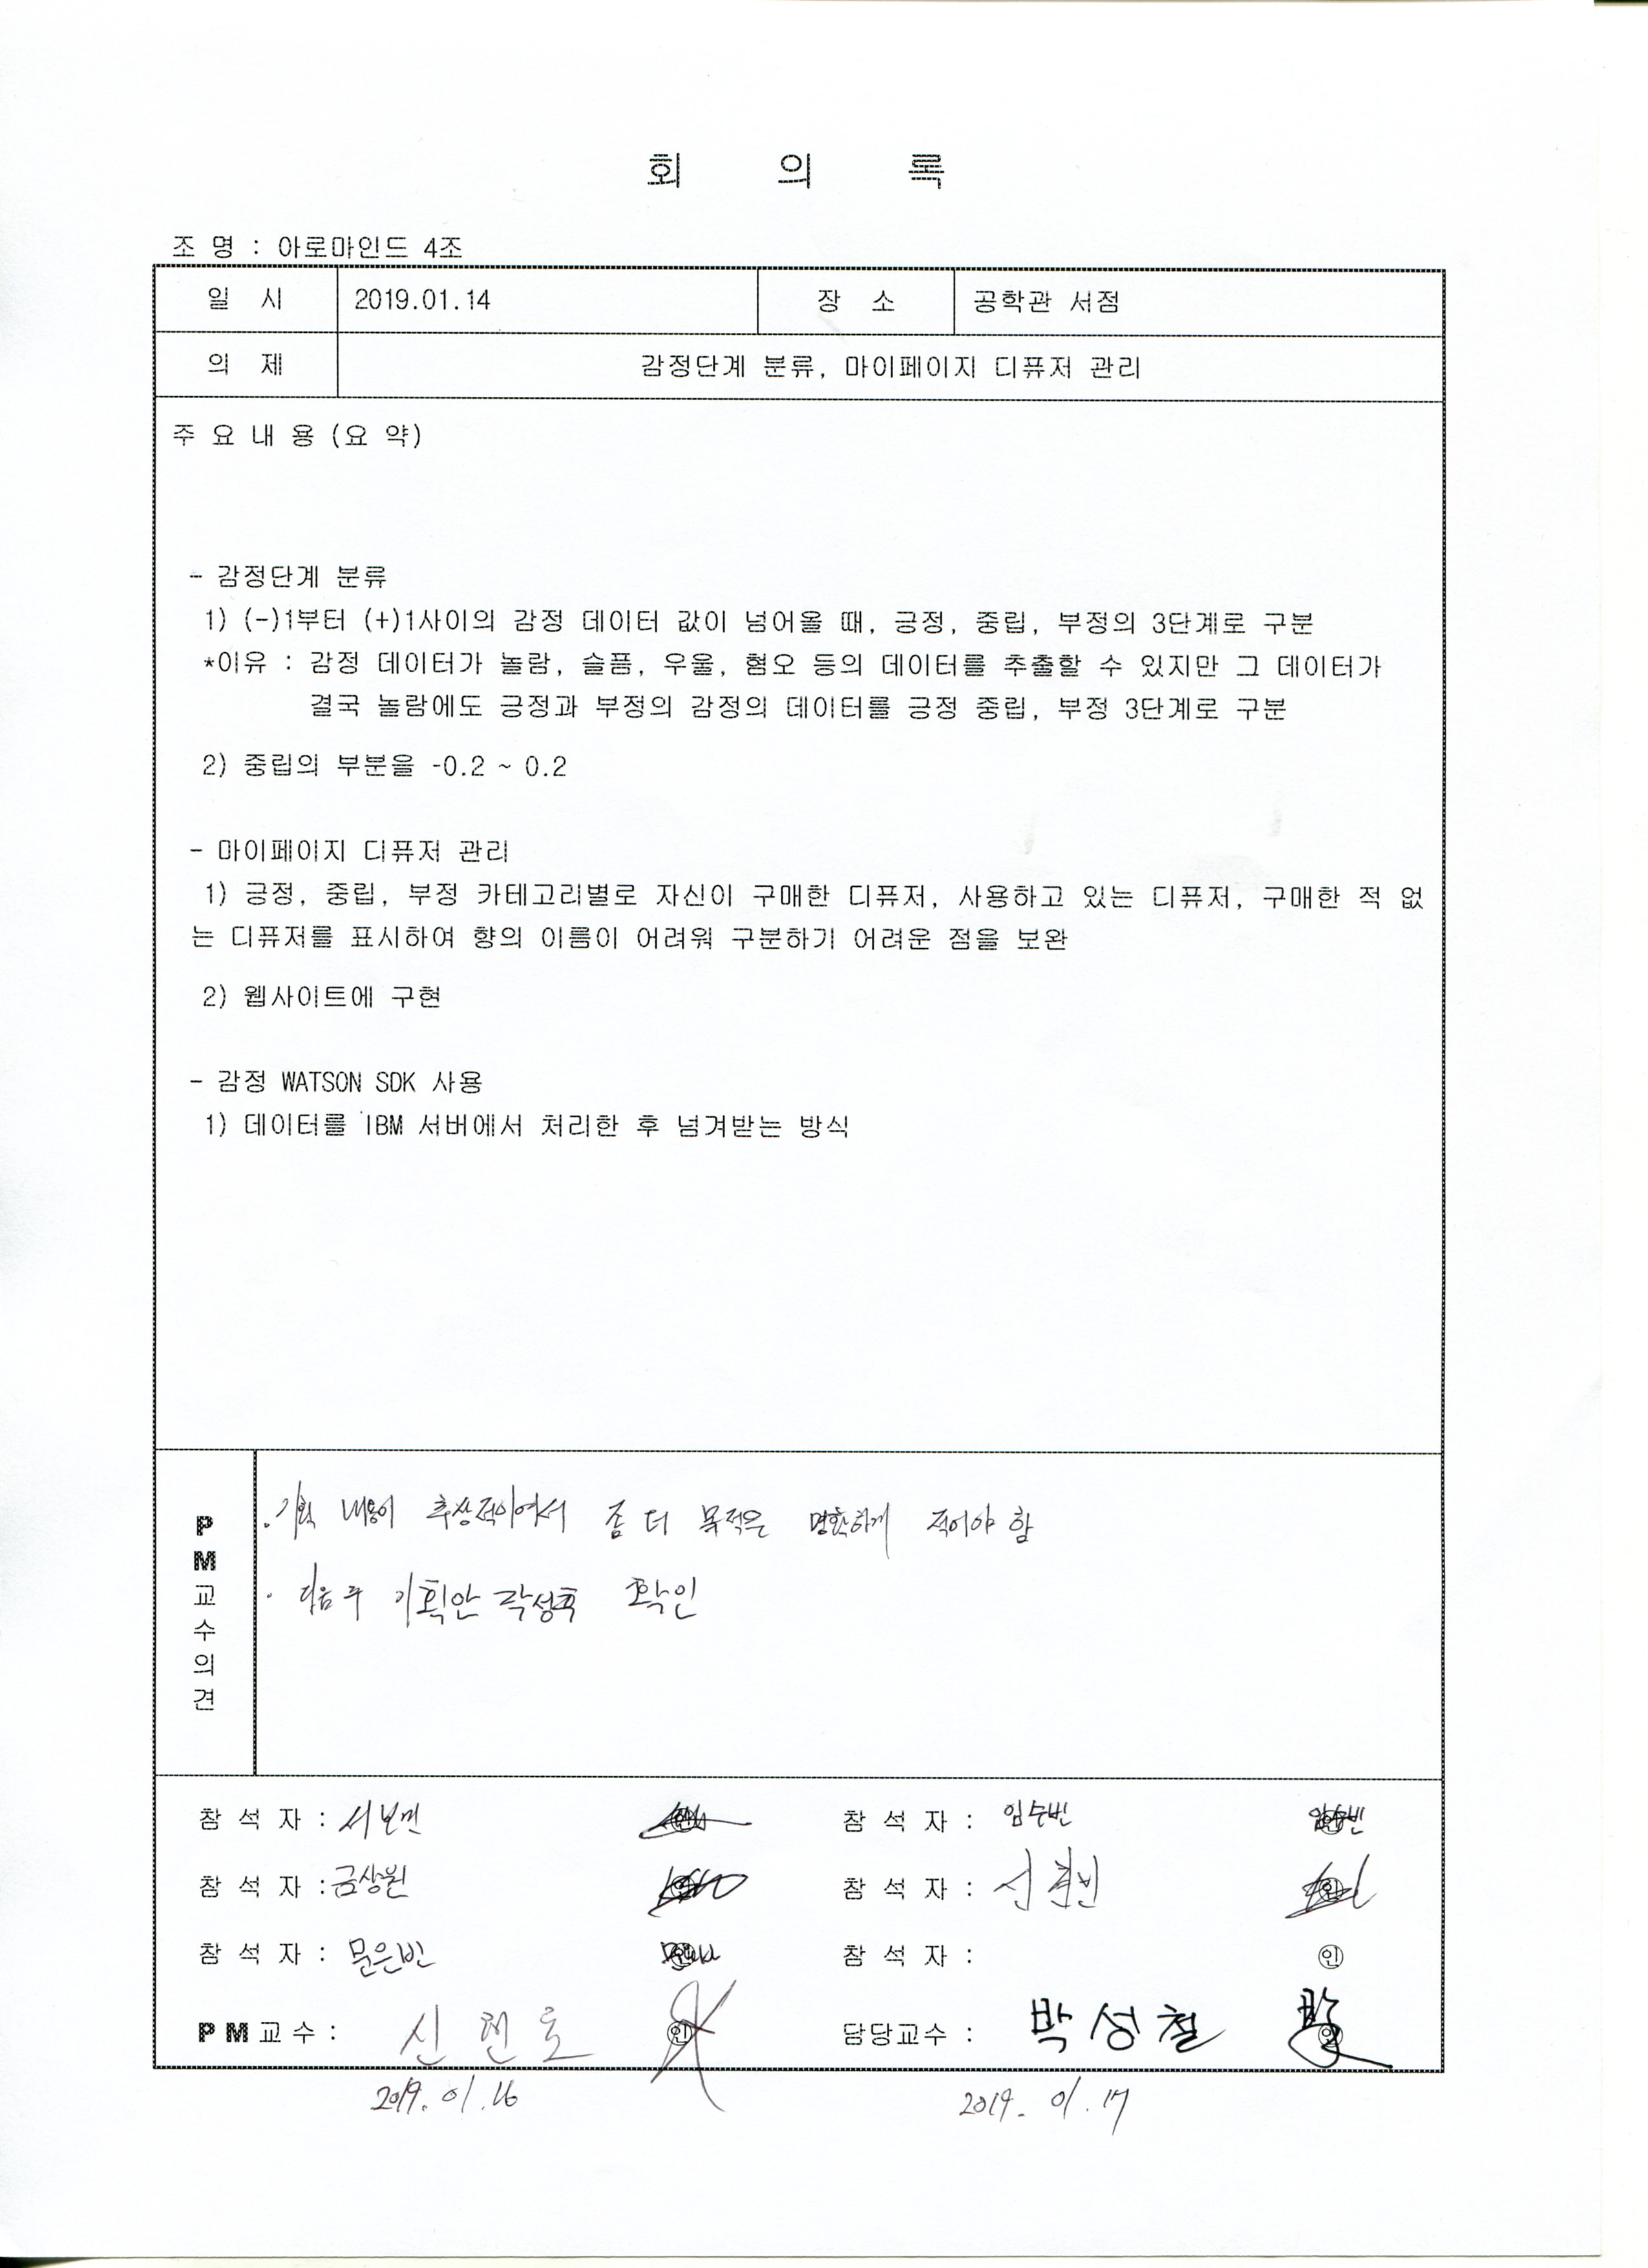 회 의 록
조 명 : 아로마인드 4조
일 시 2019.01.14 장 소 공학관 서점
의 제 감정단계 분류, 마이페이지 디퓨저 관리
주 요 내 용 (요 약)
- 감정단계 분류
1) (-)1부터 (+)1사이의 감정 데이터 값이 넘어올 때, 긍정, 중립, 부정의 3단계로 구분
*이유 : 감정 데이터가 놀람, 슬픔, 우울, 혐오 등의 데이터를 추출할 수 있지만 그 데이터가
결국 놀람에도 긍정과 부정의 감정의 데이터를 긍정 중립, 부정 3단계로 구분
2) 중립의 부분을 -0.2 ~ 0.2
- 마이페이지 디퓨저 관리
1) 긍정, 중립, 부정 카테고리별로 자신이 구매한 디퓨저, 사용하고 있는 디퓨저, 구매한 적 없
는 디퓨저를 표시하여 향의 이름이 어려워 구분하기 어려운 점을 보완
2) 웹사이트에 구현
- 감정 WATSON SDK 사용
1) 데이터를 IBM 서버에서 처리한 후 넘겨받는 방식
PM교수의견
. 기획 내용이 추상적이여서 좀 더 목적은 명확하게 적어야 함
. 다음 주 기획안 작성후 확인
참 석 자 : 서보면 참 석 자 : 임수빈 임수빈
참 석 자 : 금상원 참 석 자 : 신
참 석 자 : 문은빈 참 석 자 : 인
PM교수 : 신현호 인 담당교수 : 박성철
2019. 01. 16 2019. 01. 17